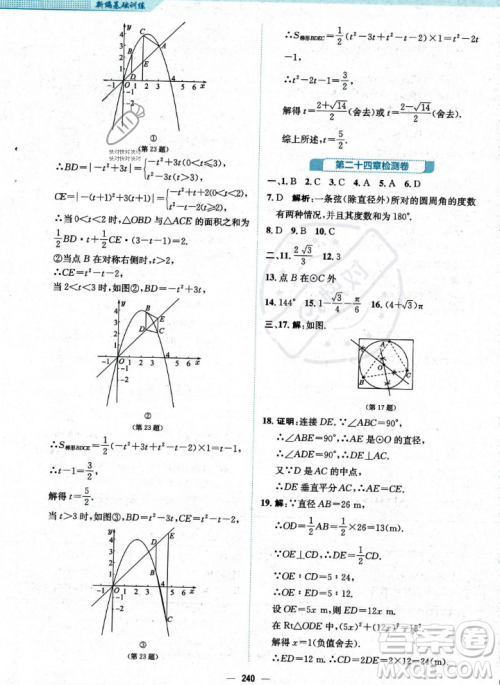 新编基础训练
①
(第23题)
∴BD=|-t²+3t|={-t²+3t(0<t<3),t²-3t(t>3).
CE=|-(t+1)²+3(t+1)-t|={-t²+2(0<t<2),t²-t-2(t>2).
∴当0<t<2时,△OBD与△ACE的面积之和为
1/2BD·t+1/2CE·(2-t)
②当点B与对称右侧时,t>2.
当2<t<3时.
②
(第23题)
∴S梯形BDCE=1/2(-t²+3t+t²-t-2)×1=3/2.
∴t-1=3/2.
解得t=5/2.
当t>3时,BD=t²-3t,CE=t²-t-2.
③
(第23题)
∴S梯形BDEC=1/2(t²-3t+t²-t-2)×1=3/2.
∴t²-2t-1=3/2.
解得t=(2+√14)/2(舍去)或t=(2-√14)/2(舍去).
综上所述,t=5/2.
第二十四章检测卷
一、1.B 2.C 3.C 4.A 5.A 6.D
7.D 解析:一条弦(除直径外)所对的圆周角的度数
有两种情况,并且和为180°.
8.D 9.B 10.C
二、11.2√3/3 12.3
13.点B在⊙C外
14.144° 15.1-√3/4-π/6 16.(4+√3)π
三、17.解:如图.
(第17题)
18.证明:连接DE.∵∠ABE=90°,
∴∠ABE=90°,AE是⊙O的直径.
∴∠ADE=90°.
又∵D是AC的中点,
∴DE垂直平分AC.
19.解:∵直径AB=26 m,
∴OD=1/2AB=1/2×26=13(m).
∵OE⊥CD,∴DE=1/2CD.
∵OE:CD=5:24,
∴OE:DE=5:12.
∴设OE=5x m,则ED=12x m.
在Rt△ODE中,(5x)²+(12x)²=13².
解得x=1(负值舍去).
∴ED=12 m.∴CD=2DE=2×12=24(m)
240